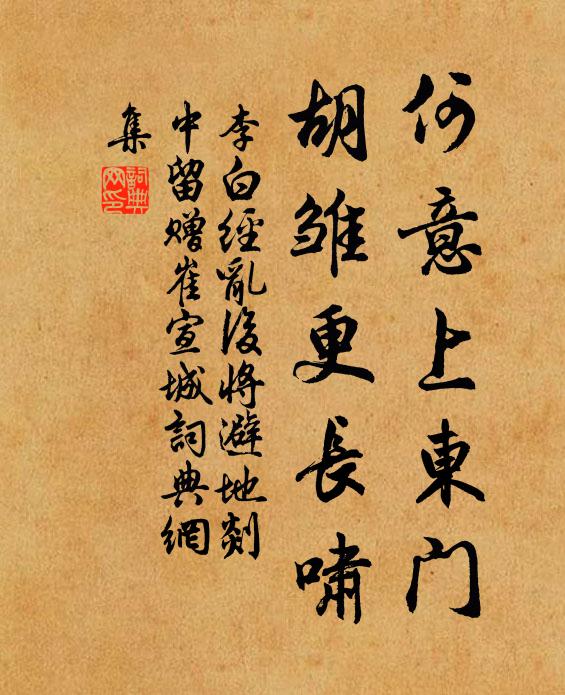 何意上東门
胡雏更長嘯
李白經亂後將避地剡
中留贈崔宣城詞典網
集
詞典
网印